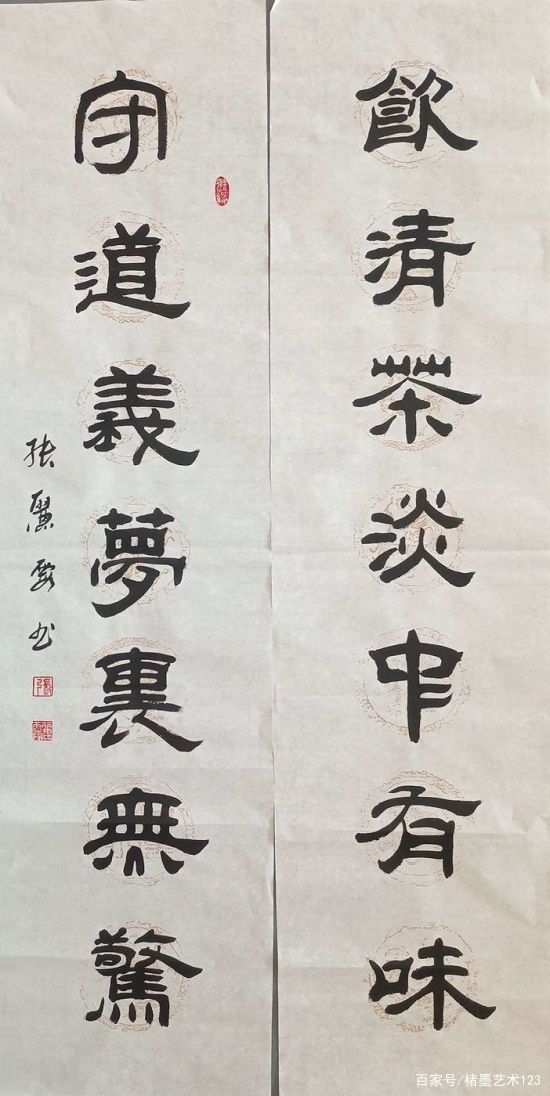 飲清茶淡中有味
守道義夢裏無驚
张
书
百家号/楮墨艺术123